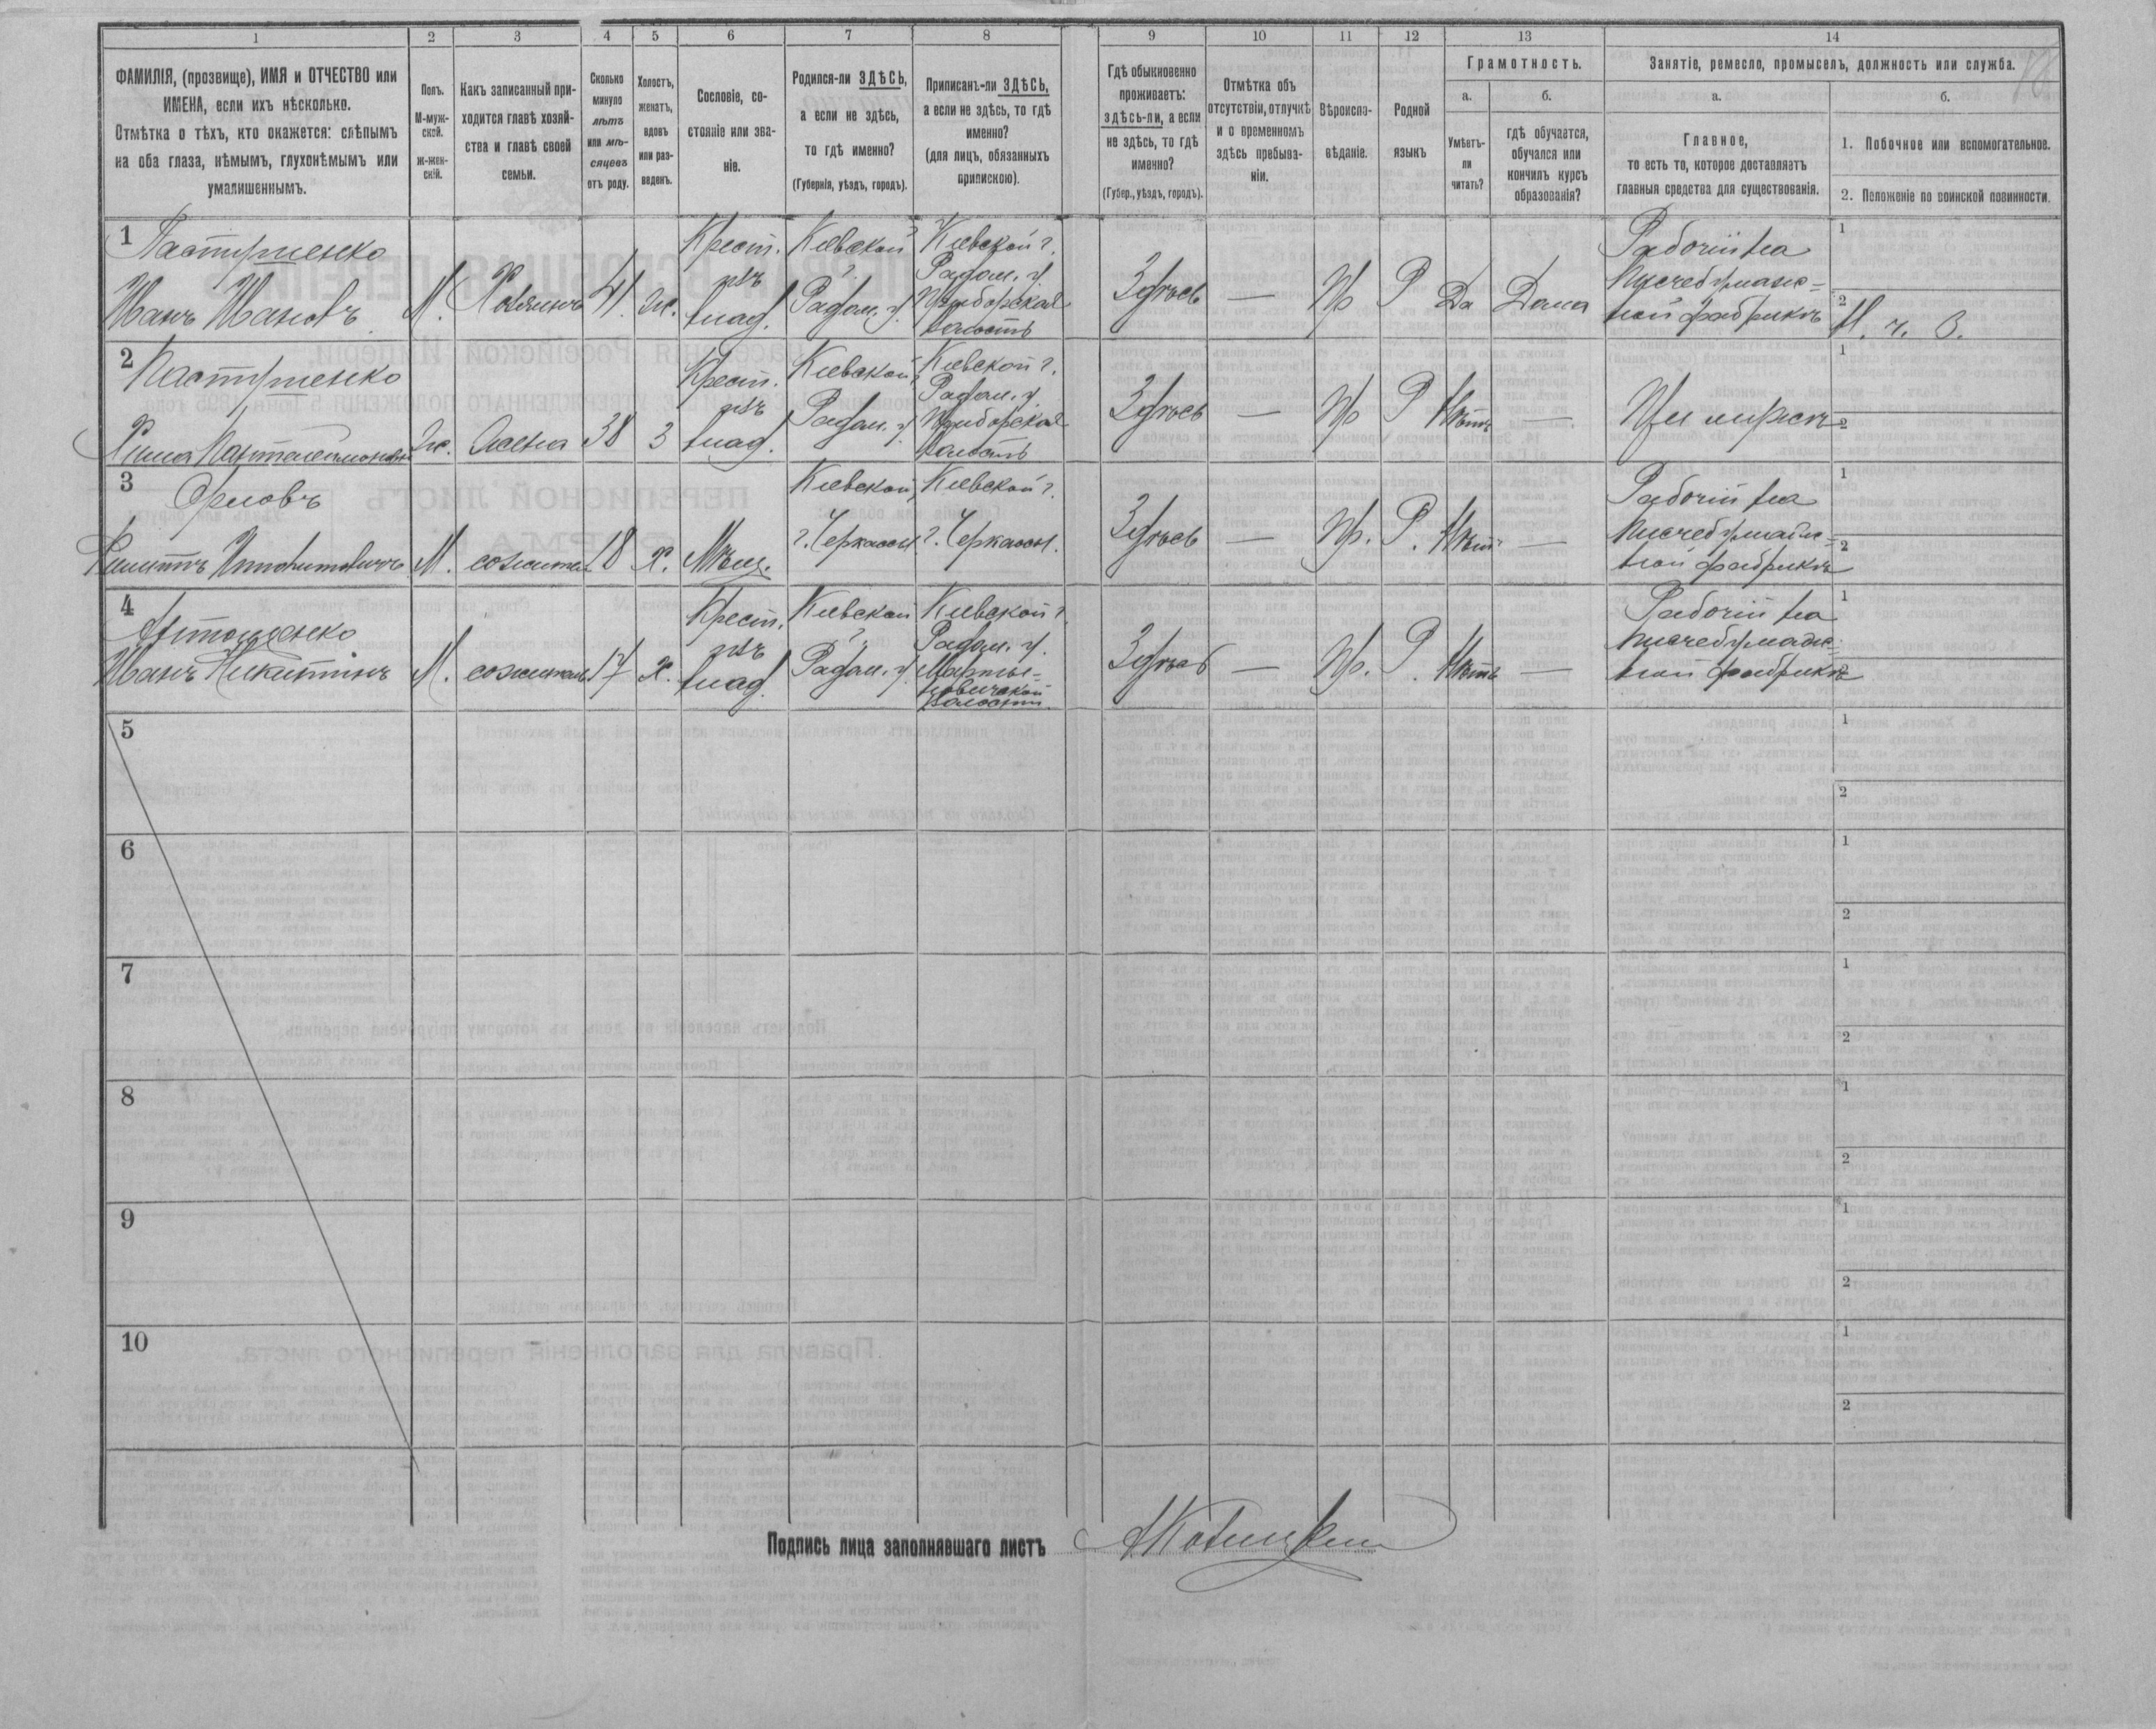 1 2 3 4 5 6 7 8 9 10 11 12 13 14
ФАМИЛІЯ, (прозвище), ИМЯ и ОТЧЕСТВО или
ИМЕНА, если ихъ нѣсколько.
Отмѣтка о тѣхъ, кто окажется: слѣпымъ
на оба глаза, нѣмымъ, глухонѣмымъ или
умалишеннымъ.
Полъ.
М-муж-
ской.
ж-жен-
скій.
Какъ записанный при-
ходится главѣ хозяй-
ства и главѣ своей
семьи.
Сколько
минуло
лѣтъ
или мѣ-
сяцевъ
отъ роду.
Холостъ,
женатъ,
вдовъ
или раз-
веденъ.
Сословіе, со-
стояніе или зва-
ніе.
Родился-ли ЗДѢСЬ,
а если не здѣсь,
то гдѣ именно?
(Губернія, уѣздъ, городъ).
Приписанъ-ли ЗДѢСЬ,
а если не здѣсь, то гдѣ
именно?
(для лицъ, обязанныхъ
припискою).
Гдѣ обыкновенно
проживаетъ:
здѣсь-ли, а если
не здѣсь, то гдѣ
именно?
(Губер., уѣздъ, городъ).
Отмѣтка объ
отсутствіи, отлучкѣ
и о временномъ
здѣсь пребыва-
ніи.
Вѣроиспо-
вѣданіе.
Родной
языкъ
Грамотность.
а.
Умѣетъ-
ли
читать?
б.
гдѣ обучается,
обучался или
кончилъ курсъ
образованія?
Занятіе, ремесло, промыселъ, должность или служба.
а.
Главное,
то есть то, которое доставляетъ
главныя средства для существованія.
б.
1. Побочное или вспомогательное.
2. Положеніе по воинской повинности.
1
Пастушенко
Иванъ Ивановъ
М.
Хозяинъ
41.
ж.
Крест.
изъ
влад.
Кіевской
г.
Радом. у.
Кіевской г.
Радом. у.
Волость
Здѣсь
—
Пр
Р
Да
Дома
Рабочій на
писчебумаж=
ной фабрикѣ
1
2
Н. ч. в.
2
Пастушенко
Пантелеимоновна
Ж.
Жена
38
З
Крест.
изъ
влад.
Кіевской г.
Радом. у.
Кіевской г.
Радом. у.
Волость
Здѣсь
—
Пр
Р
Нѣтъ
—
При мужѣ
1
2
3
Орловъ
Филиппъ
М.
сожитель
18
Х.
Мѣщ.
Кіевской
г. Черкассы
Кіевской г.
г. Черкассы.
Здѣсь
—
Пр.
Р.
Нѣтъ
—
Рабочій на
писчебумаж=
ной фабрикѣ
1
2
4
Антоненко
Иванъ Никитинъ
М.
сожитель
17
Х.
Крест.
изъ
влад.
Кіевской
г.
Радом. у.
Кіевской г.
Радом. у.
Марты=
новичской
Волости.
Здѣсь
—
Пр.
Р.
Нѣтъ
—
Рабочій на
писчебумаж=
ной фабрикѣ
1
2
5
1
2
6
1
2
7
1
2
8
1
2
9
1
2
10
1
2
Подпись лица заполнявшаго листъ